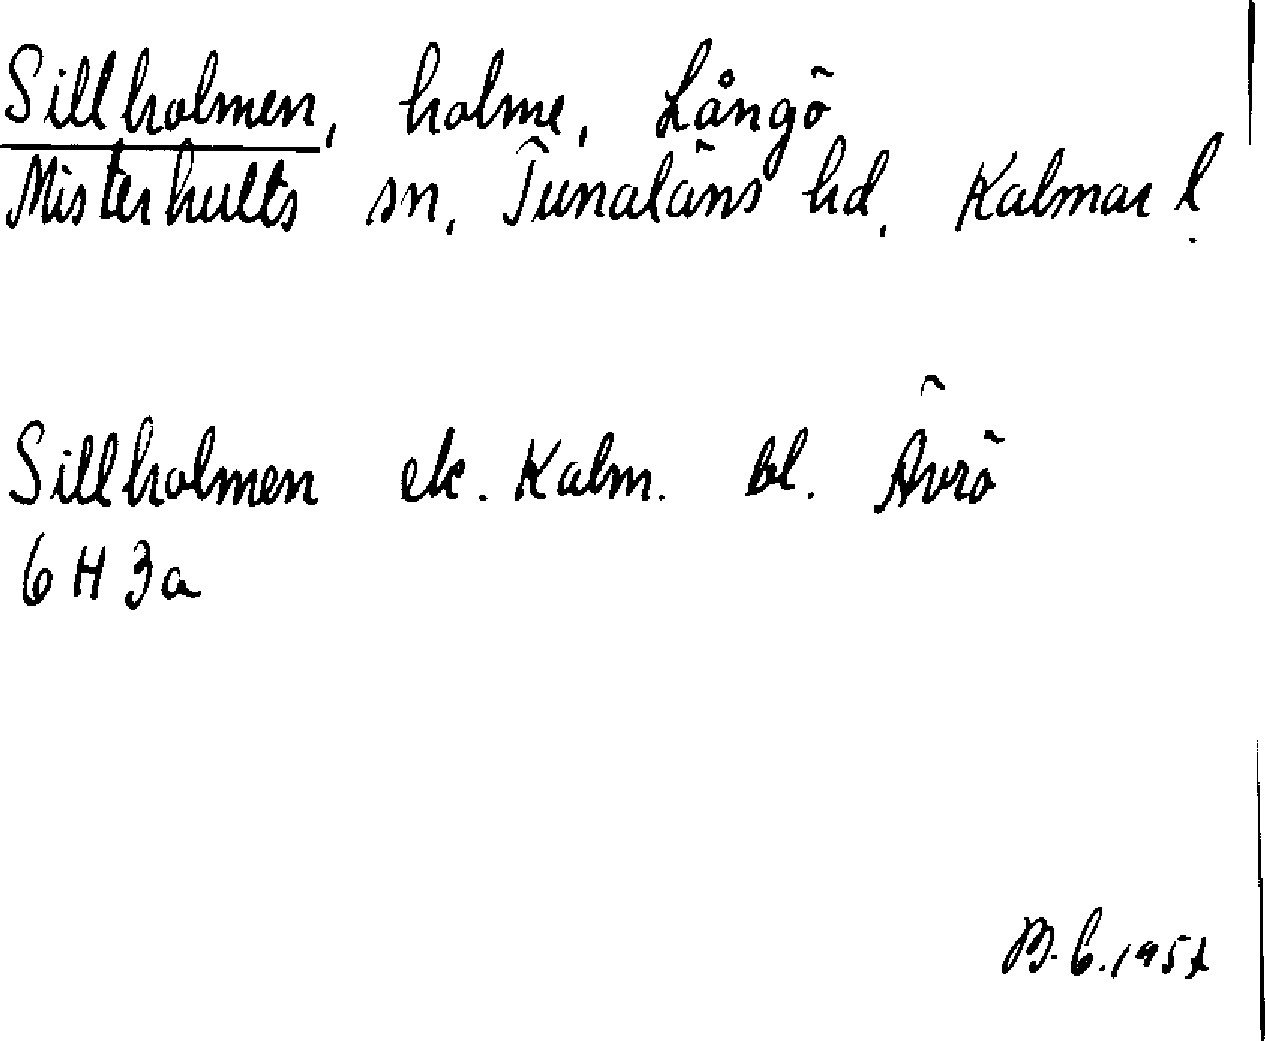 Sillholmen, holme, Långö
Misterhults sn, Tunaläns hd, Kalmar l.
Sillholmen ek. Kalm. bl. Ävrö
6 H 3a